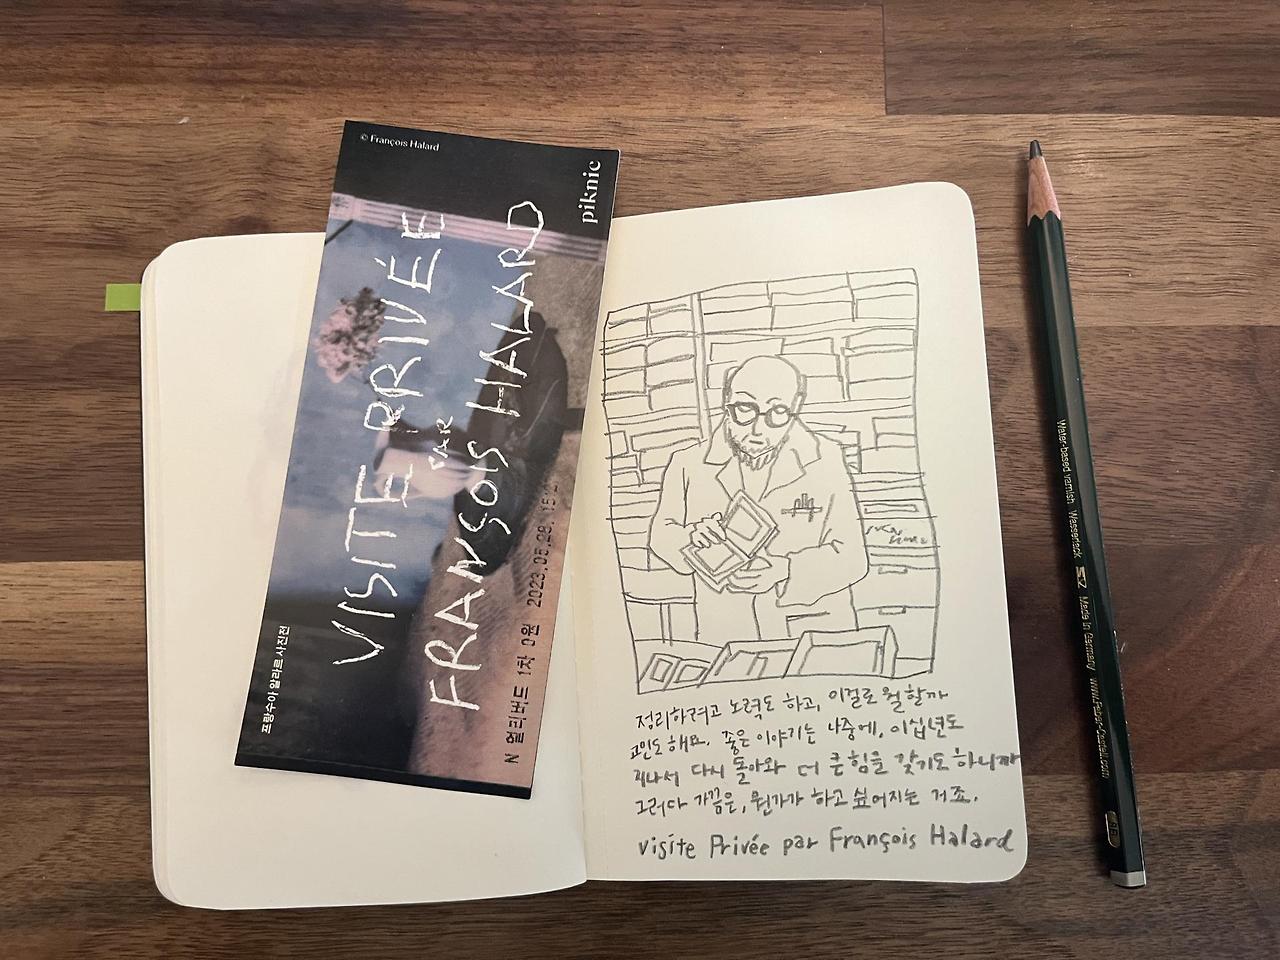 © François Halard
piknic
VISITE PRIVÉE
PAR
FRANÇOIS HALARD
프랑수아 알라르 사진전
N 얼리버드 1차 0원 2023.05.28.
정리하려고 노력도 하고, 이걸로 뭘 할까
고민도 해요. 좋은 이야기는 나중에, 이십년도
지나서 다시 돌아와 더 큰 힘을 갖기도 하니까
그러다 가끔은, 뭔가가 하고 싶어지는 거죠.
visite Privée par François Halard
Water-based varnish Wasserlack Made in Germany www.Faber-Castell.com